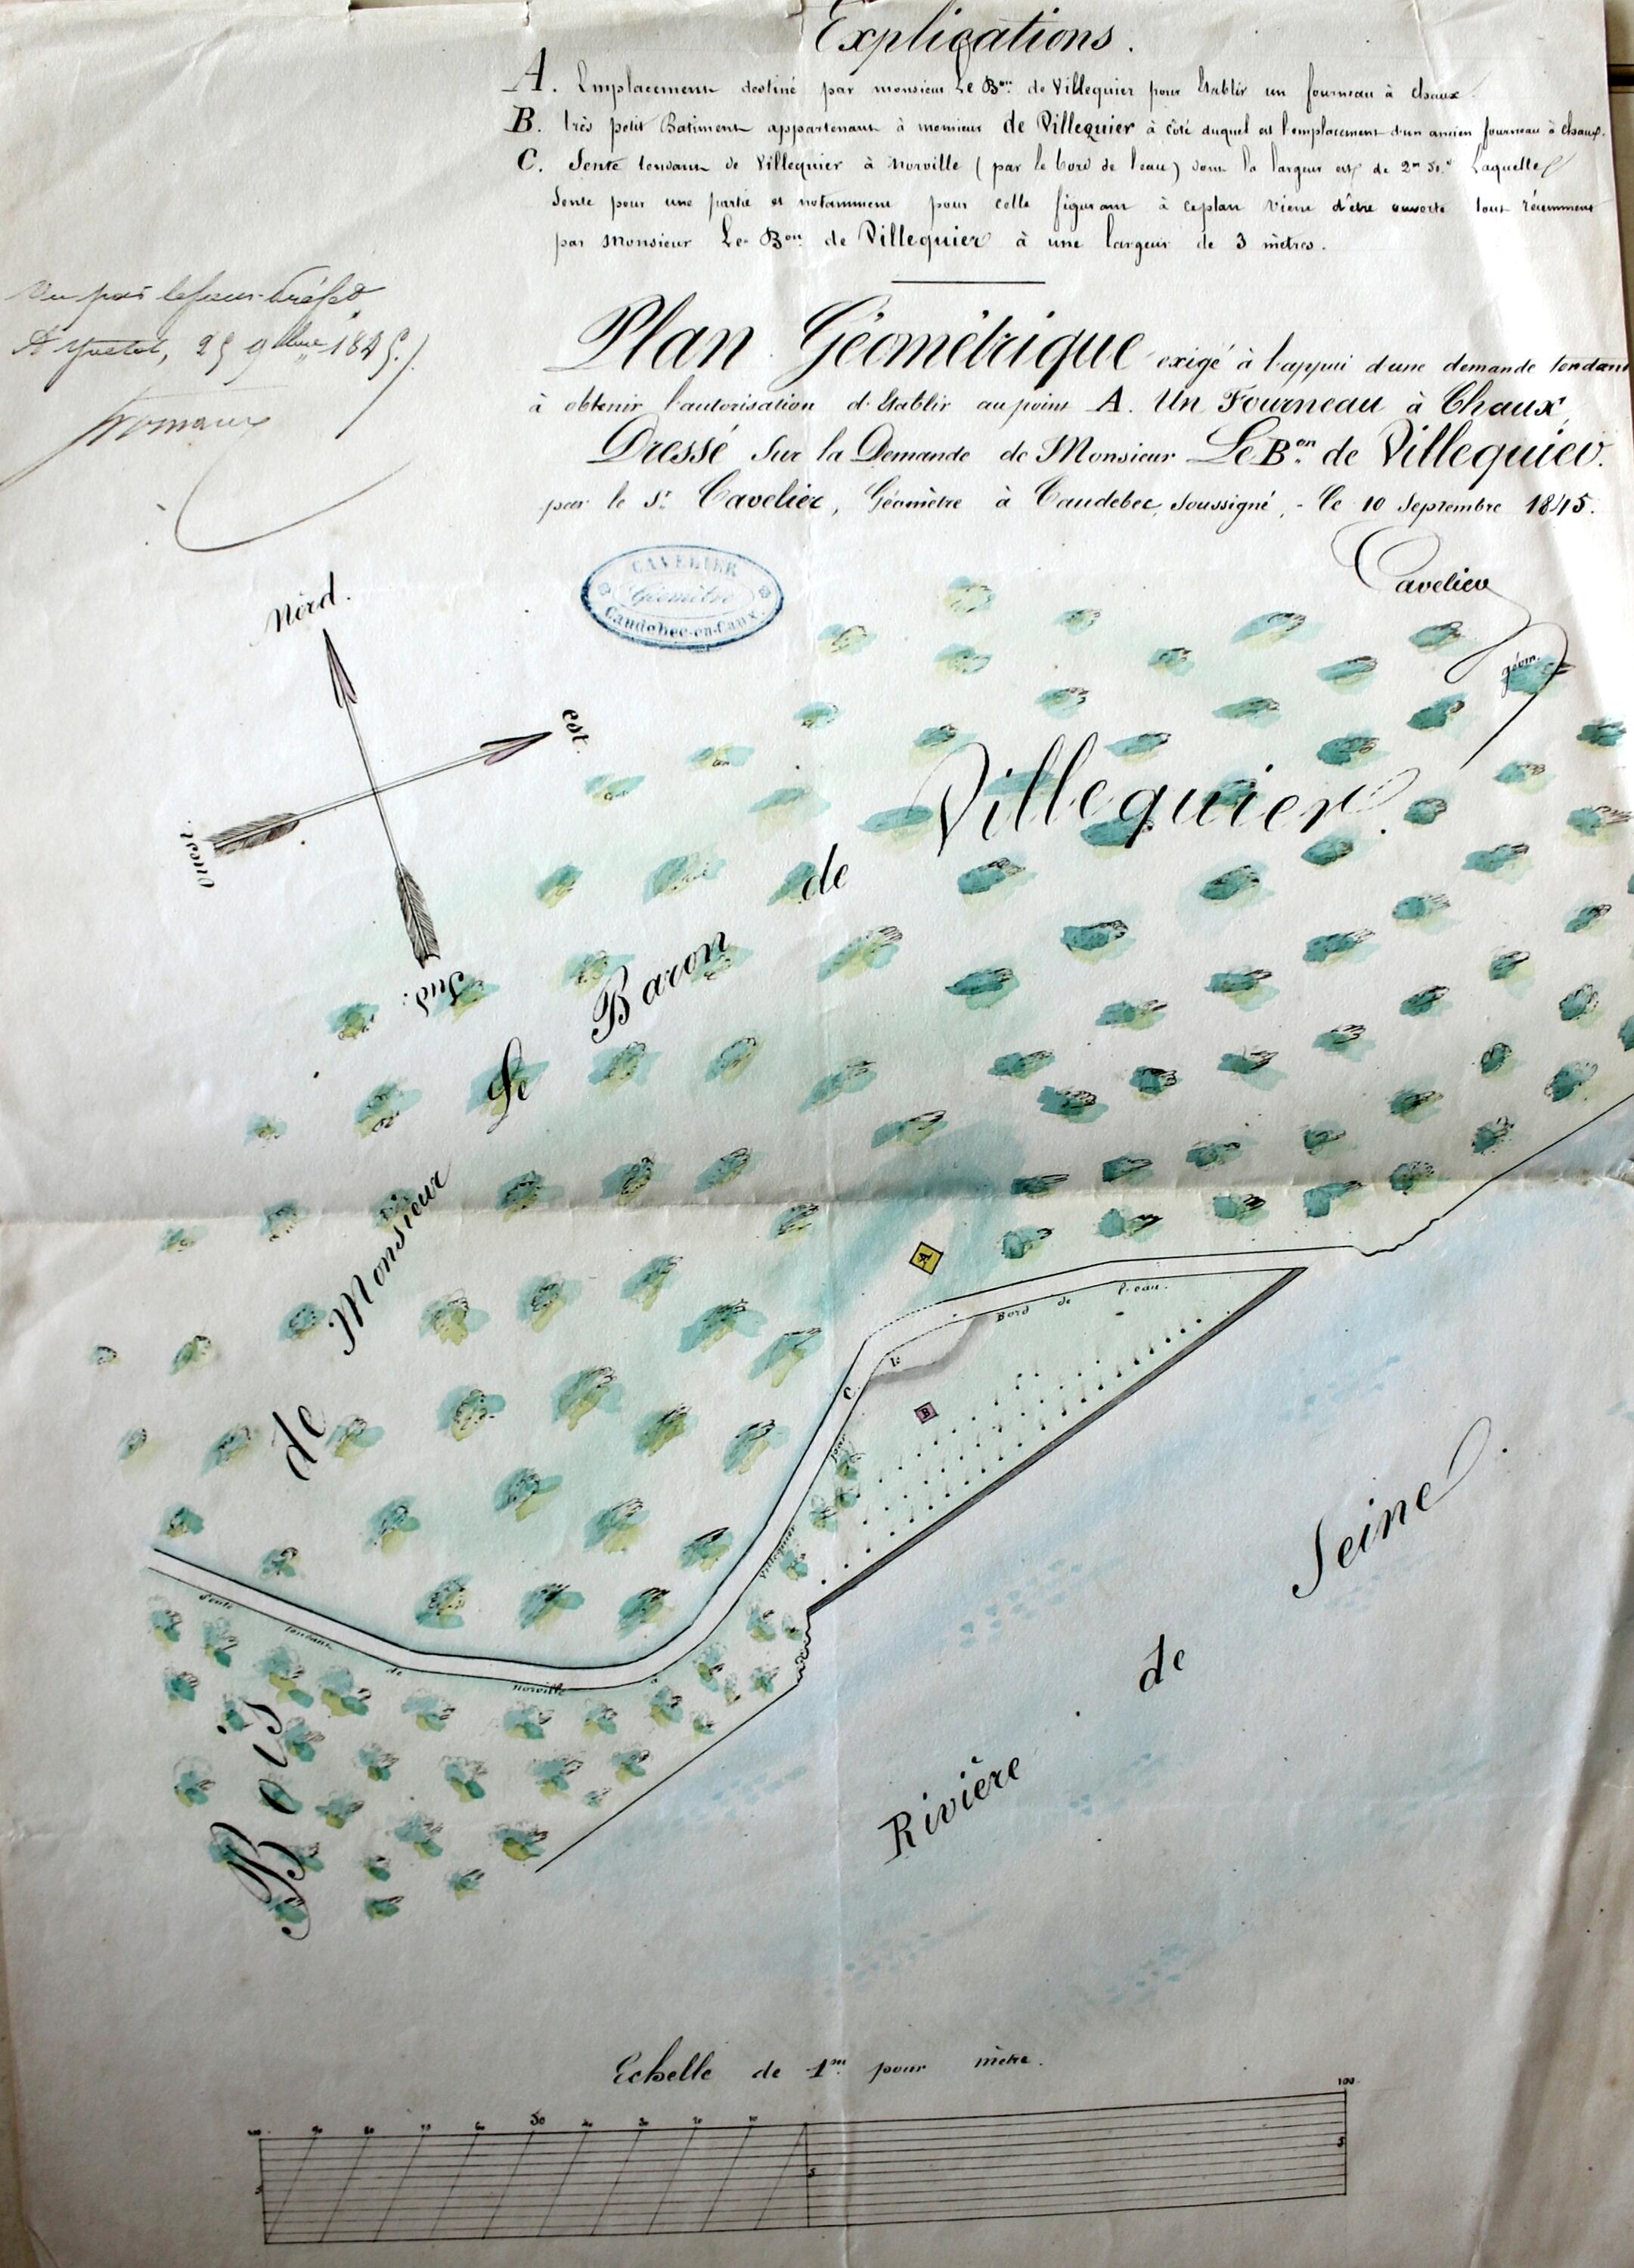 Explications.
A. Emplacement destiné par monsieur Le Bon. de Villequier pour Etablir un fourneau à chaux.
B. très petit Batiment appartenant à monsieur de Villequier à côté duquel est l'emplacement d'un ancien fourneau à chaux.
C. Sente tendant de Villequier à Norville (par le bord de l'eau) dont la largeur est de 2m Laquelle
Sente pour une partie et notamment pour celle figurant à ce plan vient d'être ouverte tout récemment
par Monsieur Le Bon de Villequier à une largeur de 3 mètres.
Vu par le sous-Préfet
d'Yvetot, 25 9bre 1845.
Plan Géométrique exigé à l'appui d'une demande tendant
à obtenir l'autorisation d'Etablir au point A. Un Fourneau à Chaux,
Dressé Sur la Demande de Monsieur Le Bon. de Villequier.
par le Sr. Cavelier, Géomètre à Caudebec, Soussigné, - le 10 Septembre 1845.
Cavelier
géom.
CAVELIER
Géomètre
Caudebec-en-Caux.
Nord.
est.
Ouest.
Sud.
Bois de Monsieur Le Baron de Villequier.
A
B
C.
Sente tendant de Norville à Villequier par le Bord de l'eau.
Rivière de Seine.
Echelle de 1m. pour mètre.
100 90 80 70 60 50 40 30 20 10 100
5 5 5